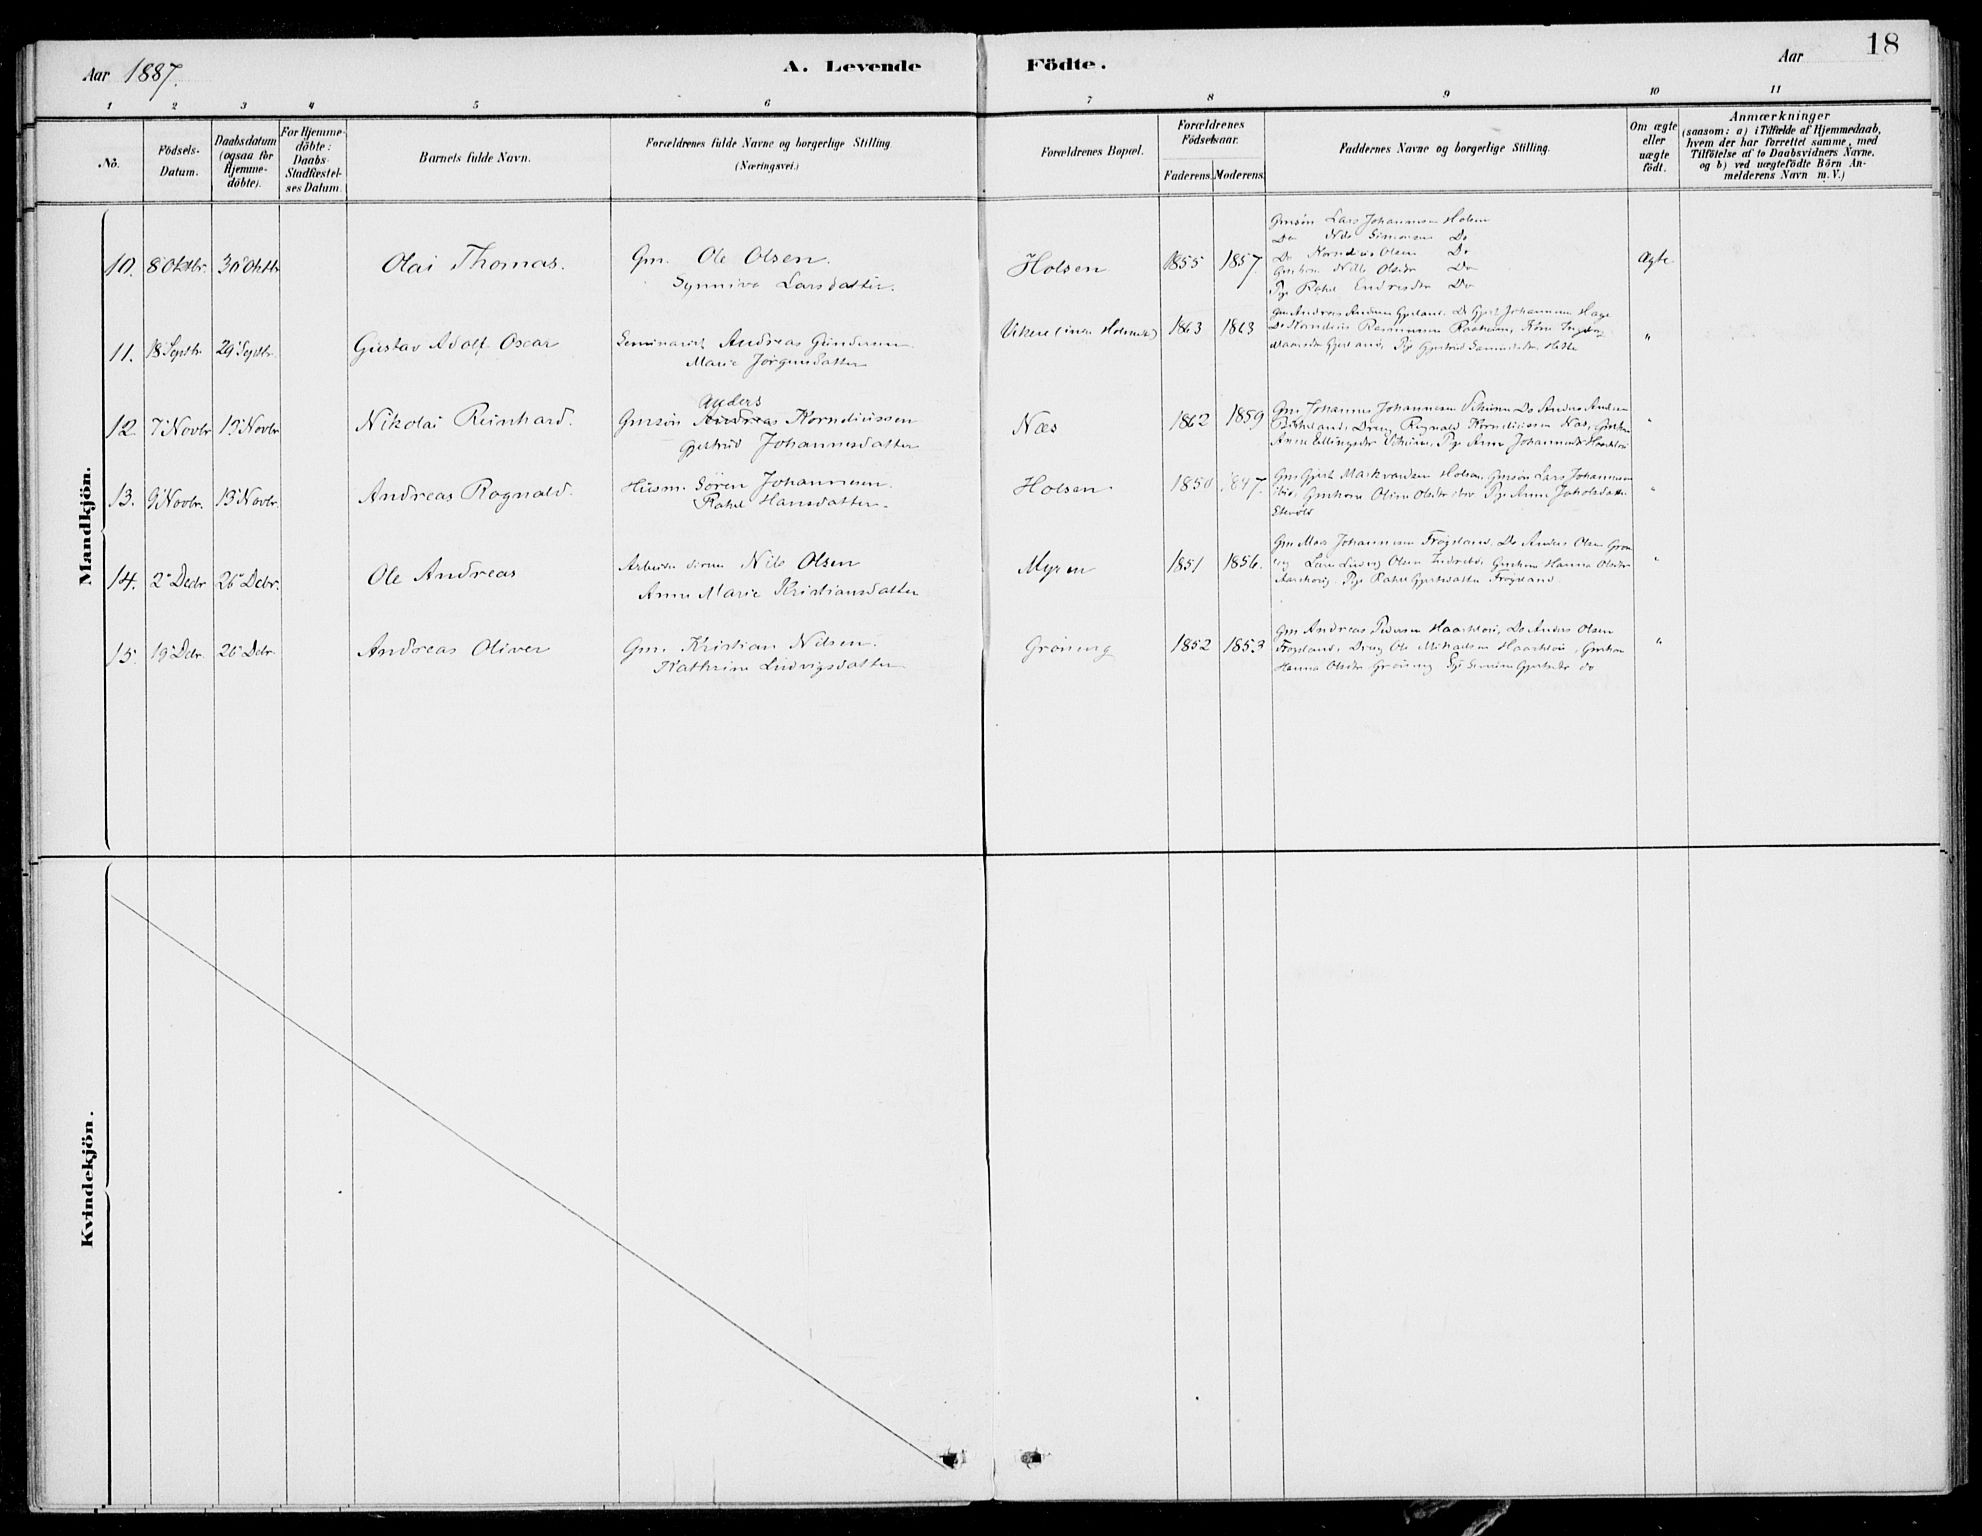 18
Aar 1887.
A. Levende Födte.
Aar
1 2 3 4 5 6 7 8 9 10 11
No.
Födsels-
Datum.
Daabsdatum
(ogsaa for
Hjemme-
döbte).
For Hjemme-
döbte:
Daabs-
Stadfæstel-
ses Datum.
Barnets fulde Navn.
Forældrenes fulde Navne og borgerlige Stilling
(Næringsvei.)
Forældrenes Bopæl.
Forældrenes
Födselsaar.
Faderens. Moderens.
Faddernes Navne og borgerlige Stilling.
Om ægte
eller
uægte
födt.
Anmærkninger
(saasom: a) i Tilfælde af Hjemmedaab,
hvem der har forrettet samme, med
Tilföielse af to Daabsvidners Navne,
og b) ved uægtefödte Börn An-
melderens Navn m. V.)
Mandkjön.
10. 8 Oktbr. 30 Oktbr Olai Thomas. Gm. Ole Olsen.
Synnive Larsdatter.
Holsen 1855 1857
Gmsön Lars Johannesen Holsen
Do Nils Simonsen Do
Do Kornelius Olsen Do
Gmkone Nille Olsdtr Do
Pge Rahel Endresdtr Do
Ægte
11. 18 Septbr 29 Septbr. Gustav Adolf Oscar Seminarist Andreas Gundersen
Marie Jörgensdatter
1863 1863
Gm Andreas Andersen Gjesland. Do Gjert Johannesen Hage
Do Kornelius Rasmussen
Gjertrud
"
12. 7 Novbr 13 Novbr. Nikolai Reinhard. Gmsön Andreas Anders Korneliussen
Gjertrud Johannesdatter
Næs 1862 1859
Gm. Johannes Johannesen Do Anders Andersen
Dreng Rognald Korneliussen Næs, Gmkone
Anne Ellingsdtr Pge Anne Johannesdtr
"
13. 9 Novbr. 13 Novbr. Andreas Rognald. Husm. Sören Johannesen.
Rahel Hansdatter.
Holsen 1850 1847.
Gm Gjert Markvardsen Holsen, Gmsön Lars Johannesen
ibid, Gmkone Oline Olsdtr ibid Pge Anne Jakobsdatter
"
14. 2 Decbr 26 Decbr. Ole Andreas Nils Olsen
Anne Marie Kristiansdatter
Myren 1851 1856.
Gm Mons Johannesen Frøysland, Do Anders Olsen Grön-
ing Lars Ludvig Olsen Gmkone Hanna Olsdtr
Pge Rahel Gjertsdatter Frøysland.
"
15. 19 Decbr. 26 Decbr Andreas Oliver Gm. Kristian Nilsen.
Kathrine Ludvigsdatter
Gröning 1852 1853
Gm Andreas Pedersen Do Anders Olsen
Frøysland, Dreng Ole Mikkelsen Gmkone
Hanna Olsdtr Gröning Pge Gjertsdtr do
"
Kvindekjön.